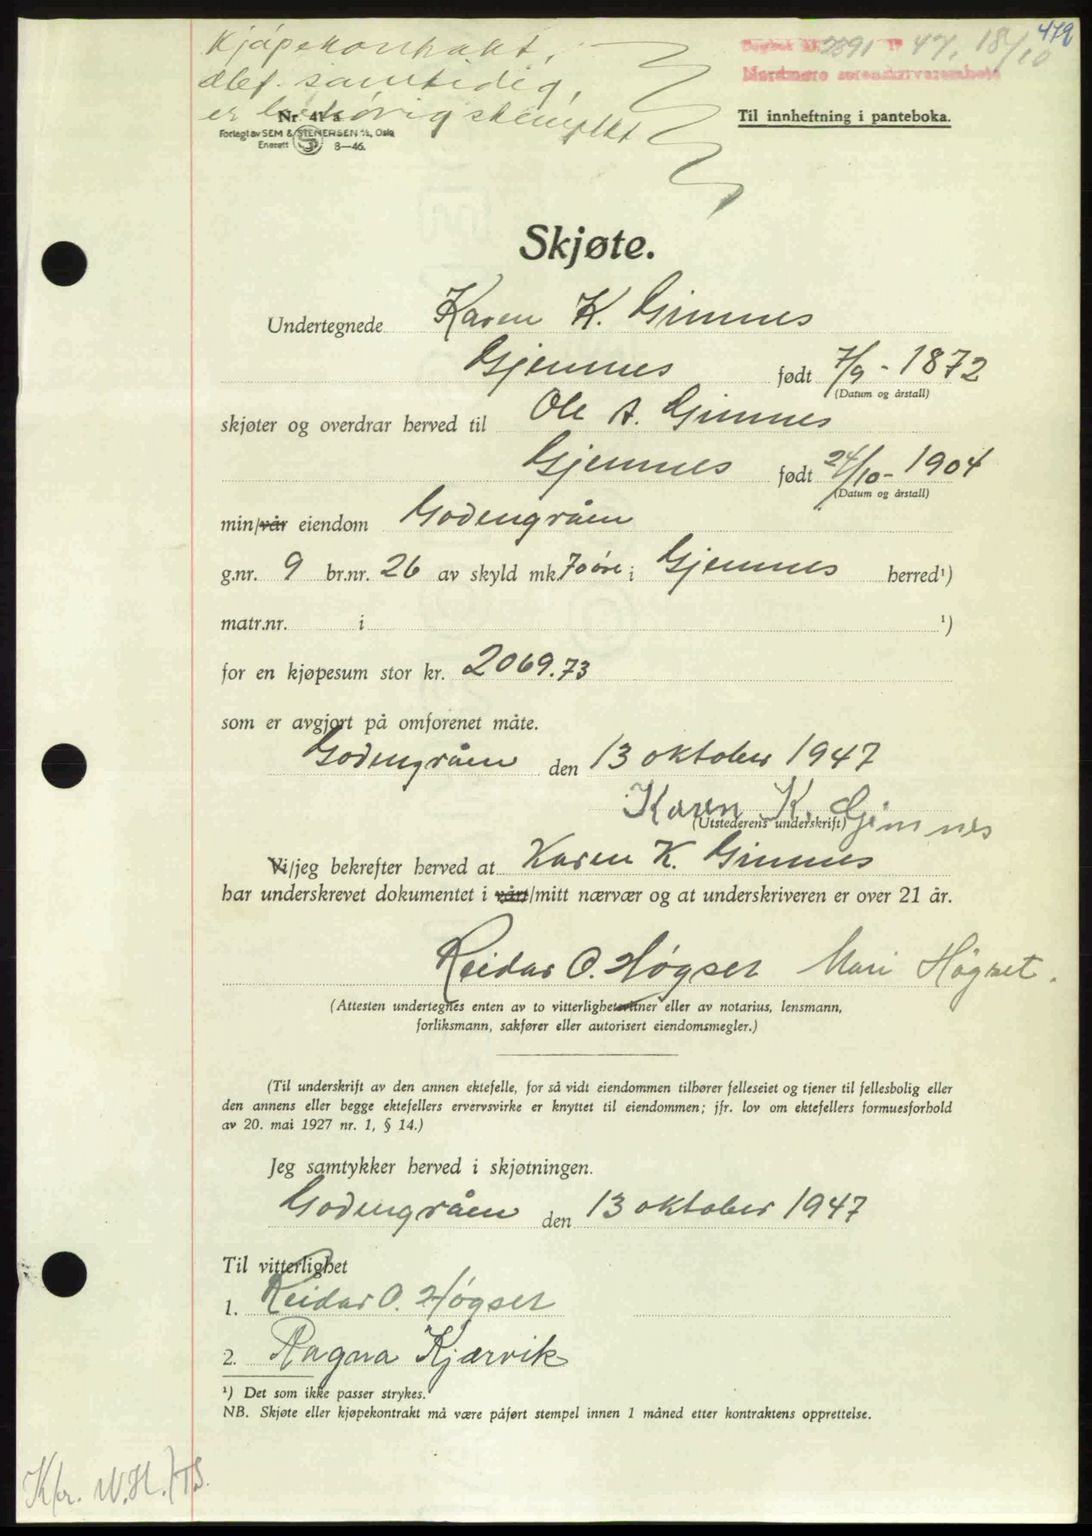 Kjøpekontrakt,
dat. samtidig,
er behørig stemplet
479
Dagbok nr. 2891 19 47, 18/10
Nordmøre sorenskriverembete
Nr. 41 a
Forlagt av SEM & STENERSEN A/S, Oslo
Enerett 8—46.
Til innheftning i panteboka.
Skjøte.
Undertegnede Karen K. Gimnes
Gjemnes født 7/9 - 1872
(Datum og årstall)
skjøter og overdrar herved til Ole A. Gimnes
Gjemnes født 24/10 - 1904
(Datum og årstall)
min/vår eiendom Godengråen
g.nr. 9 br.nr. 26 av skyld mk. 70 øre i Gjemnes herred¹)
matr.nr. i ¹)
for en kjøpesum stor kr. 2069.73
som er avgjort på omforenet måte.
Godengråen den 13 oktober 1947
Karen K. Gimnes
(Utstederens underskrift)
Vi/jeg bekrefter herved at Karen K. Gimnes
har underskrevet dokumentet i vårt/mitt nærvær og at underskriveren er over 21 år.
Reidar O. Høgset Mari Høgset.
(Attesten undertegnes enten av to vitterlighetsvitner eller av notarius, lensmann,
forliksmann, sakfører eller autorisert eiendomsmegler.)
(Til underskrift av den annen ektefelle, for så vidt eiendommen tilhører felleseiet og tjener til fellesbolig eller
den annens eller begge ektefellers ervervsvirke er knyttet til eiendommen; jfr. lov om ektefellers formuesforhold
av 20. mai 1927 nr. 1, § 14.)
Jeg samtykker herved i skjøtningen.
Godengråen den 13 oktober 1947
Til vitterlighet
1. Reidar O. Høgset
2. Ragna Kjærvik
¹) Det som ikke passer strykes.
NB. Skjøte eller kjøpekontrakt må være påført stempel innen 1 måned etter kontraktens opprettelse.
Kfr. W.H./TS.